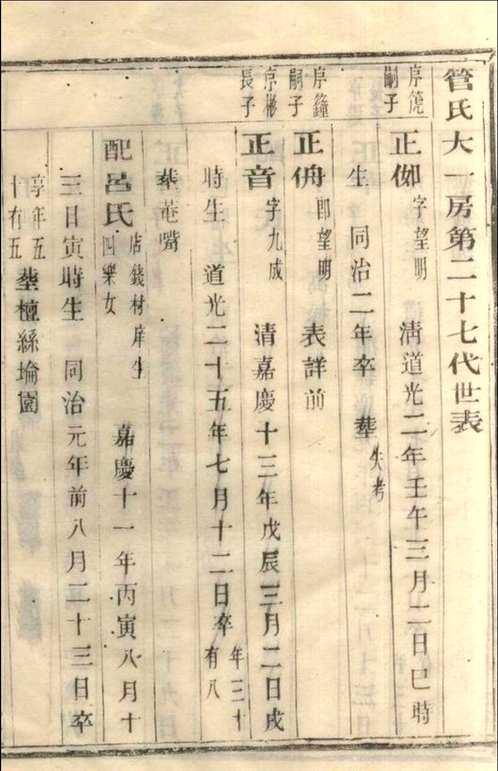 管氏大一房第二十七代世表
序箎嗣子 正伮 字望明 清道光二年壬午三月二日巳時
生 同治二年卒 葬失考
序鐘嗣子 正侜 即望明 表詳前
序彬長子 正音 字九成 清嘉慶十三年戊辰三月二日戌
時生 道光二十五年七月十二日卒 年三十有八
葬菴嘴
配呂氏 店錢材庠生四樂女 嘉慶十一年丙寅八月十
三日寅時生 同治元年前八月二十三日卒
享年五十有五 葬檀絲埨園